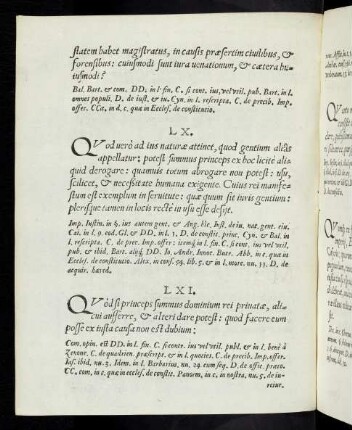 statem habet magistratus, in causis præsertim ciuilibus, &
forensibus: cuiusmodi sunt iura uenationum, & cætera hu-
iusmodi?
Bal. Bart. & com. DD. in l. fin. C. si cont. ius, vel vtil. pub. Bart. in l.
omnes populi, D. de iust. & iu. Cyn. in l. rescripta. C. de precib. Imp.
offer. CCæ, in d. c. quæ in Eccles. de constitutio.
LX.
QVod uerò ad ius naturæ attinet, quod gentium aliàs
appellatur: potest summus princeps ex hoc licitè ali-
quid derogare: quamuis totum abrogare non potest: usu,
scilicet, & necessitate humana exigente. Cuius rei manife-
stum est exemplum in seruitute: quæ quum sit iuris gentium:
plerisque tamen in locis rectè in usu esse desijt.
Imp. Iustin. in §. ius autem gent. & Ang. ibi, Inst. de iu. nat. gent. ciu.
Cai. in l. 9. eod. Gl. & DD. in l. 1. D. de constit. princ. Cyn. & Bal. in
l. rescripta. C. de prec. Imp. offer: itemq́ in l. fin. C. si cont. ius vel vtil.
pub. & ibid. Bart. alijq́. DD. Io. Andr. Innoc. Bart. Abb. in c. quæ in
Eccles. de constitutio. Alex. in cons. 99. lib. 5. & in l. more. nu. 33. D. de
acquir. hæred.
LXI.
QVòd si princeps summus dominium rei priuatæ, ali-
cui aufferre, & alteri dare potest: quod facere eum
posse ex iusta causa non est dubium:
Com. opin. est DD. in l. fin. C. si contr. ius vel vtil. publ. & in l. benè à
Zenone. C. de quadrien. præscript. & in l. quoties. C. de precib. Imp. offer.
Ias. ibid. nu. 2. Idem. in l. Barbarius, nu. 29. cum seq. D. de offic. præto.
CC. com, in c. quæ in eccles. de constit. Panorm. in c. in nostra, nu. 5. de in-
reiur.